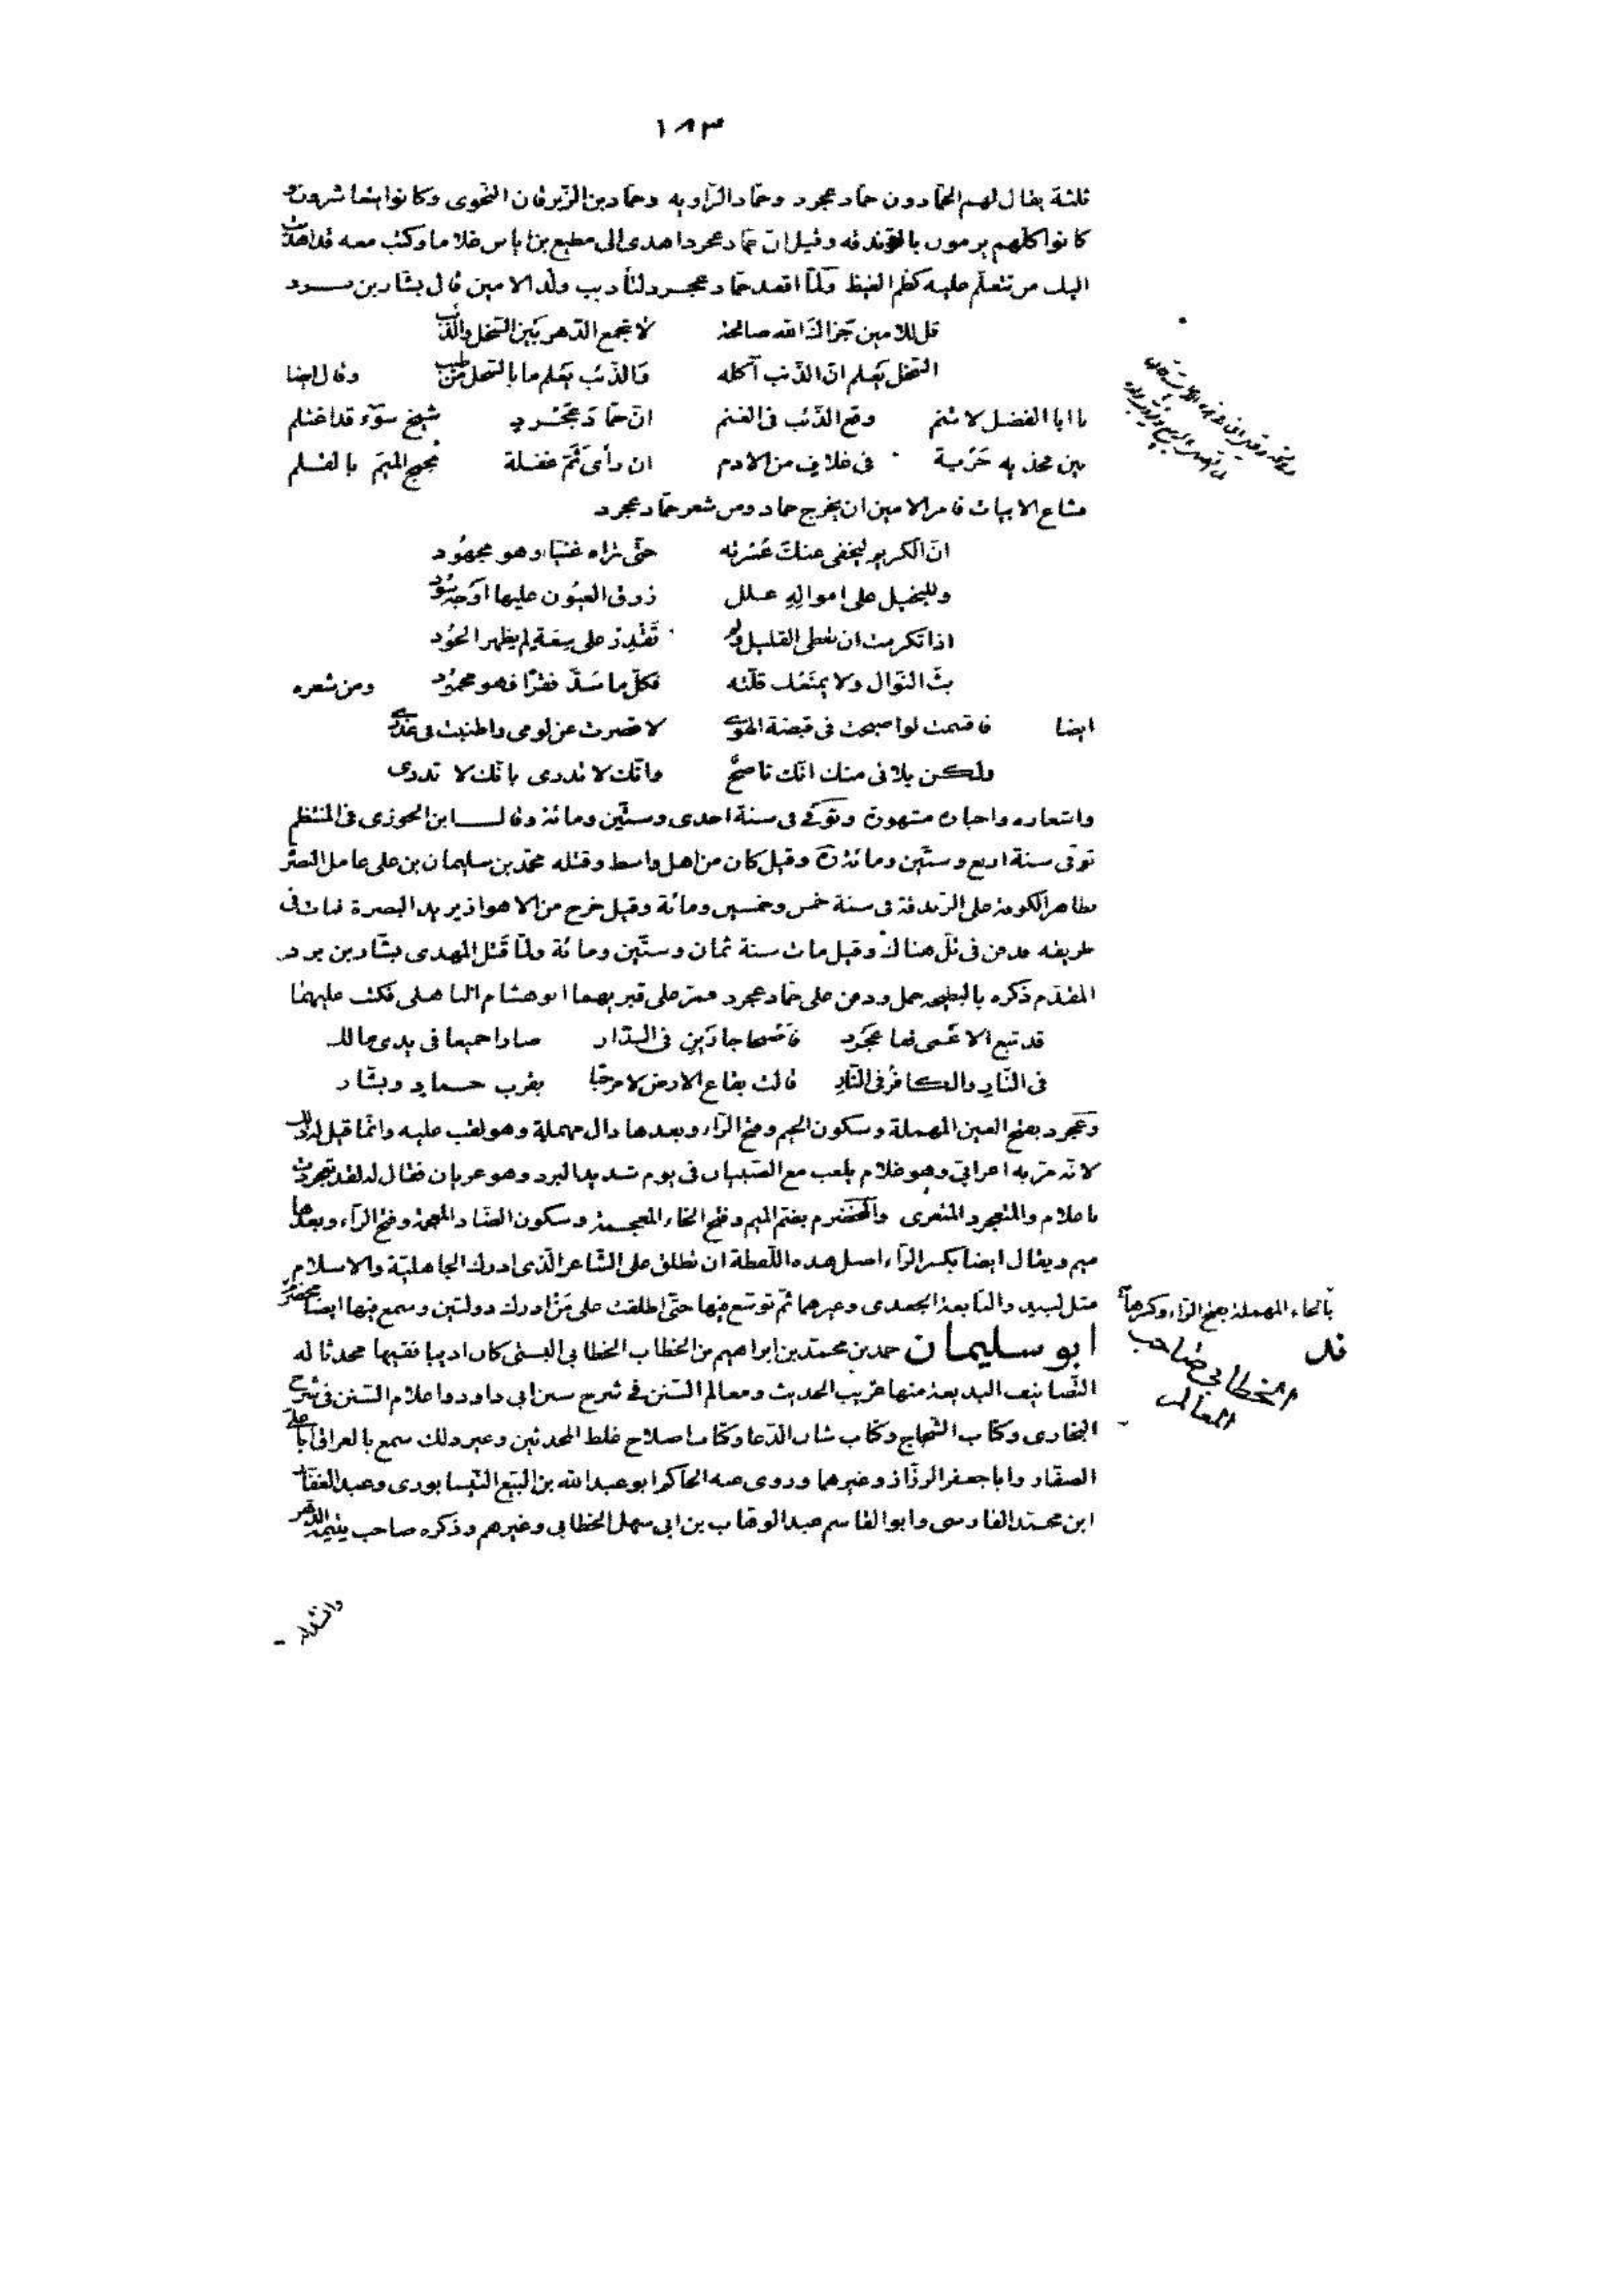 ١٨٣
ثلثة يقال لهم الحمّادون حمّاد عجرد وحمّاد الرّاويه وحمّاد بن الزّبرقان النّحوى وكانوا يتعاشرون و
كانوا كلّهم يرمون بالزّندقه وقيل انّ حمّاد عجرد اهدى الى مطيع بن اياس غلاما وكتب معه قد اهديت
اليك من تتعلّم عليه كظم الغيظ ولمّا اقعد حمّاد عجرد لتأديب ولد الامين قال بشّار بن برد
قل للامين جزاك الله صالحة لا تجمع الدّهر بين السّخل والذّئب
السّخل يعلم انّ الذّئب آكله والذّئب يعلم ما بالسّخل من طيب وقال ايضا
يا ابا الفضل لا تنم وقع الذّئب فى الغنم انّ حمّاد عجرد شيخ سوء قد اغتلم
بين فخذيه حربة فى غلاف من الادم ان رأى ثمّ غفلة مجمج الميم بالقلم
فشاع الابيات فامر الامين ان يخرج حماد ومن شعر حمّاد عجرد
انّ الكريم ليخفى عنك عسرته حتّى تراه غنيّا وهو مجهود
وللبخيل على امواله علل زرق العيون عليها اوجه سود
اذا تكرمت ان تعطى القليل ولم تقدر على سعة لم يظهر الجود
بثّ النّوال ولا يمنعك قلّته فكلّ ما سدّ فقرا فهو محمود ومن شعره
ايضا فاقسمت لو اصبحت فى قبضة الهوى لاقصرت عن لومى واطنبت فى عذرى
ولكن بلائى منك انّك ناصح وانّك لا تدرى بانّك لا تدرى
واشعاره واخباره مشهورة وتوفّى فى سنة احدى وستّين ومائة وقال ابن الجوزى فى المنتظم
توفّى سنة اربع وستّين ومائة وقيل كان من اهل واسط وقتله محمّد بن سليمان بن على عامل البصرة
بظاهر الكوفة على الزندقة فى سنة خمس وخمسين ومائة وقيل خرج من الاهواز يريد البصرة فمات فى
طريقه فدفن فى تلّ هناك وقيل مات سنة ثمان وستّين ومائة ولمّا قتل المهدى بشّار بن برد
المقدّم ذكره بالبطيحه حمل ودفن على حمّاد عجرد فمرّ على قبريهما ابو هشام الباهلى فكتب عليهما
قد تبع الاعمى قفا عجرد فاصبحا جارين فى الدّار صارا جميعا فى يدى مالك
فى النّار والكافر فى النّار قالت بقاع الارض لا مرحبا بقرب حماد وبشّار
وعجرد بفتح العين المهملة وسكون الجيم وفتح الرّاء وبعدها دال مهملة وهو لقب عليه وانّما قيل له ذلك
لانّه مرّ به اعرابى وهو غلام يلعب مع الصّبيان فى يوم شديد البرد وهو عريان فقال له لقد تعجردت
يا غلام والمتعجرد المتعرى والمخضرم بضمّ الميم وفتح الخاء المعجمة وسكون الضّاد المعجمة وفتح الرّاء وبعدها
ميم ويقال ايضا بكسر الرّاء اصل هذه اللّفظة ان تطلق على الشّاعر الّذى ادرك الجاهليّة والاسلام
مثل لبيد والنّابغة الجعدى وغيرهما ثمّ توسّع فيها حتّى اطلقت على من ادرك دولتين وسمع فيها ايضا محضرم
بالحاء المهملة بفتح الرّاء وكسرها
ابو سليمان حمد بن محمّد بن ابراهيم من الخطاب الخطابى البستى كان اديبا فقيها محدثا له
الخطابى صاحب
المعالم
التّصانيف البديعة منها غريب الحديث ومعالم السّنن فى شرح سنن ابى داود واعلام السّنن فى شرح
البخارى وكتاب الشّجاج وكتاب شان الدّعا وكتاب اصلاح غلط المحدثين وغير ذلك سمع بالعراق ابا على
الصفّار وابا جعفر الرزّاز وغيرهما وروى عنه الحاكم ابو عبد الله بن البيّع النّيسابورى وعبد الغفّار
ابن محمّد الفارسى وابو القاسم عبد الوهّاب بن ابى سهل الخطابى وغيرهم وذكره صاحب يتيمة الدّهر